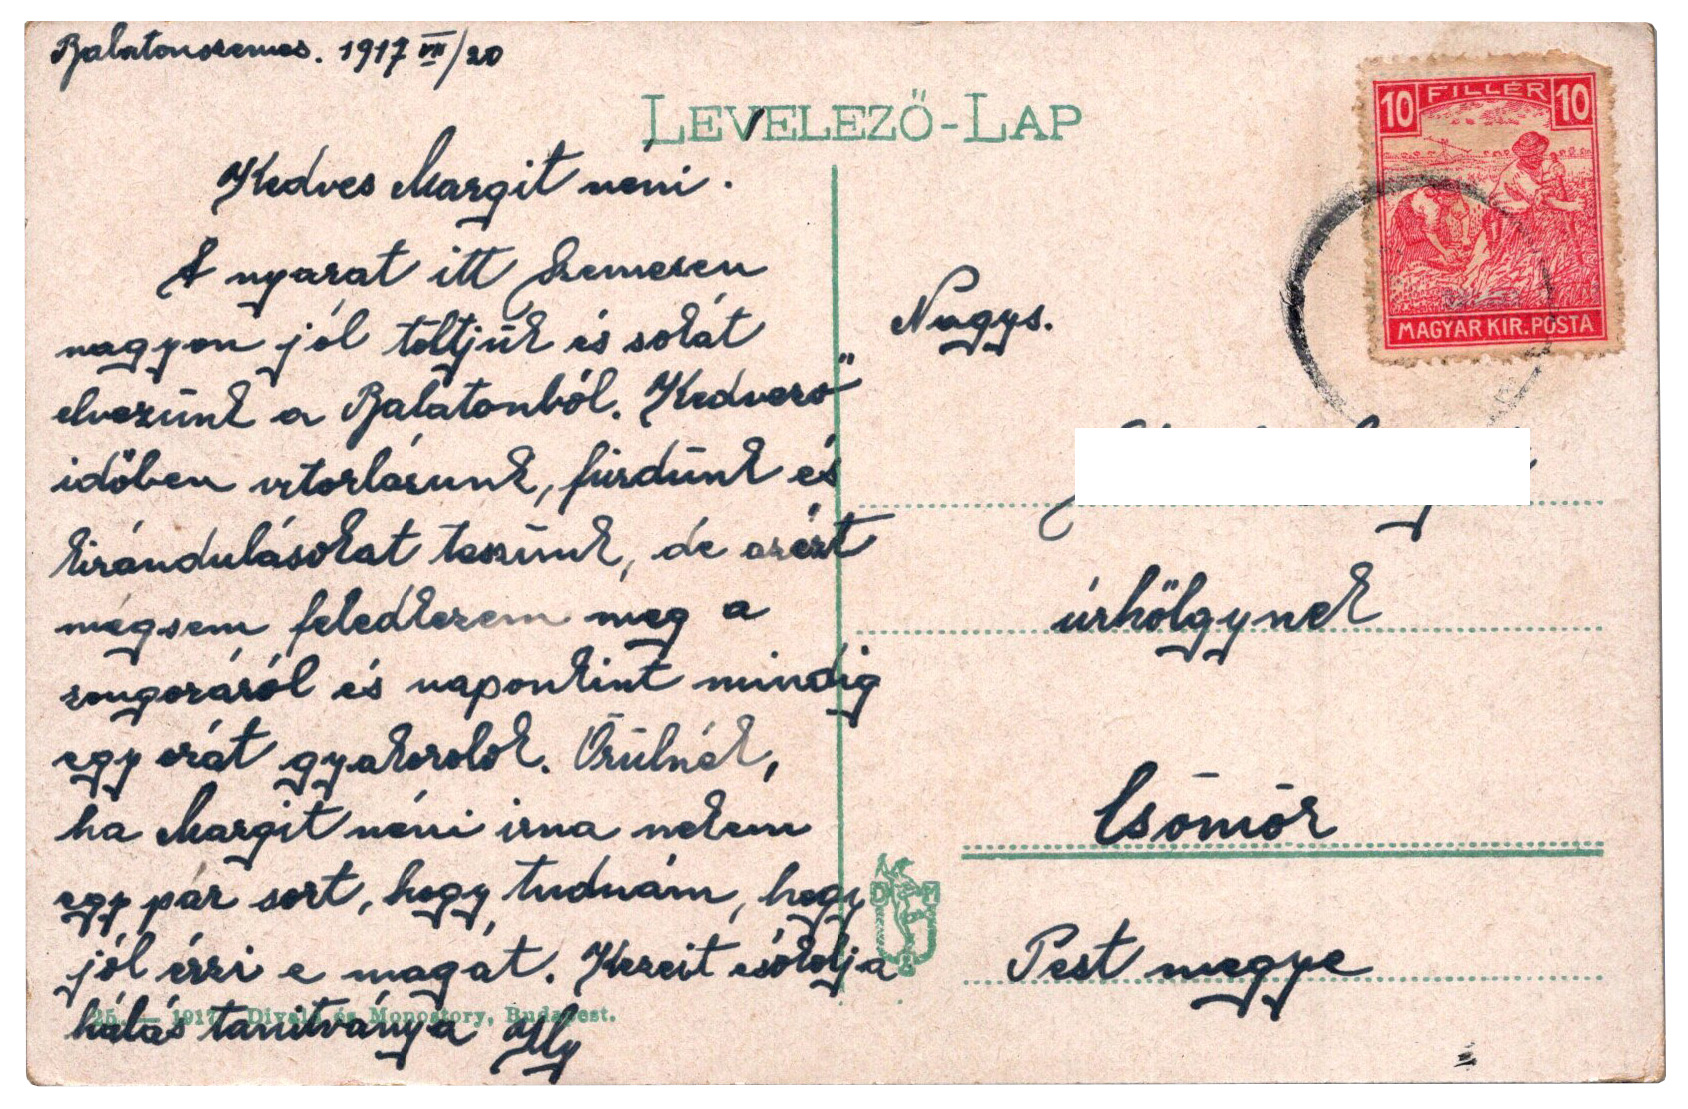 Balatonszemes. 1917 VII/20
LEVELEZŐ-LAP
10 FILLÉR 10
MAGYAR KIR. POSTA
Kedves Margit neni.
A nyarat itt Szemesen
nagyon jól töltjük és sokát
elvezünk a Balatonból. Kedvező
időben vitorlázunk, fürdünk és
kirándulásokat teszünk, de azért
mégsem feledkezem meg a
zongoráról és naponkint mindig
egy órát gyakorolok. Örülnék,
ha Margit néni irna nekem
egy pár sort, hogy tudnám, hogy
jól érzi e magát. Kezeit csókolja
hálás tanitványa Illy
25. — 1917. Divald és Monostory, Budapest.
Nagys.
úrhölgynek
Csömör
Pest megye
D M